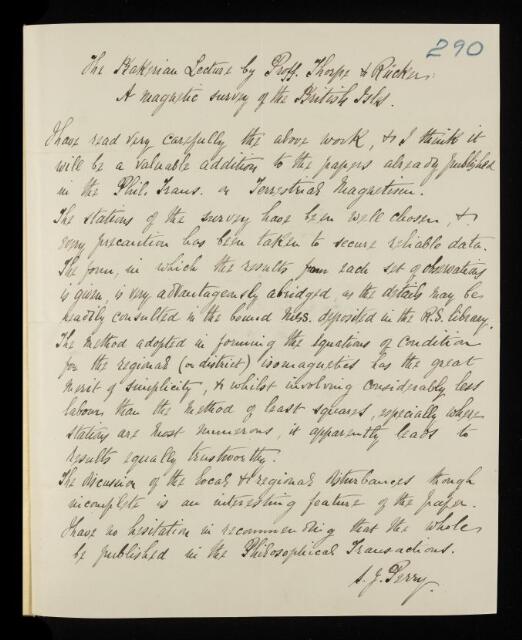 290
The Bakerian Lecture by Proff. Thorpe & Rücker:
A magnetic survey of the British Isles.
I have read very carefully the above work, & I think it
will be a valuable addition to the papers already published
in the Phil. Trans. on Terrestrial Magnetism.
The stations of the survey have been well chosen, &
every precaution has been taken to secure reliable data.
The form, in which the results from each set of observations
is given, is very advantageously abridged, as the details may be
readily consulted in the bound Mss. deposited in the R.S. library.
The method adopted in forming the equations of condition
for the regional (or district) isomagnetics has the great
merit of simplicity, & whilst involving considerably less
labour than the method of least squares, especially where
stations are most numerous, it apparently leads to
results equally trustworthy.
The discussion of the local & regional disturbances though
incomplete is an interesting feature of the paper.
I have no hesitation in recommending that the whole
be published in the Philosophical Transactions.
S. J. Perry.